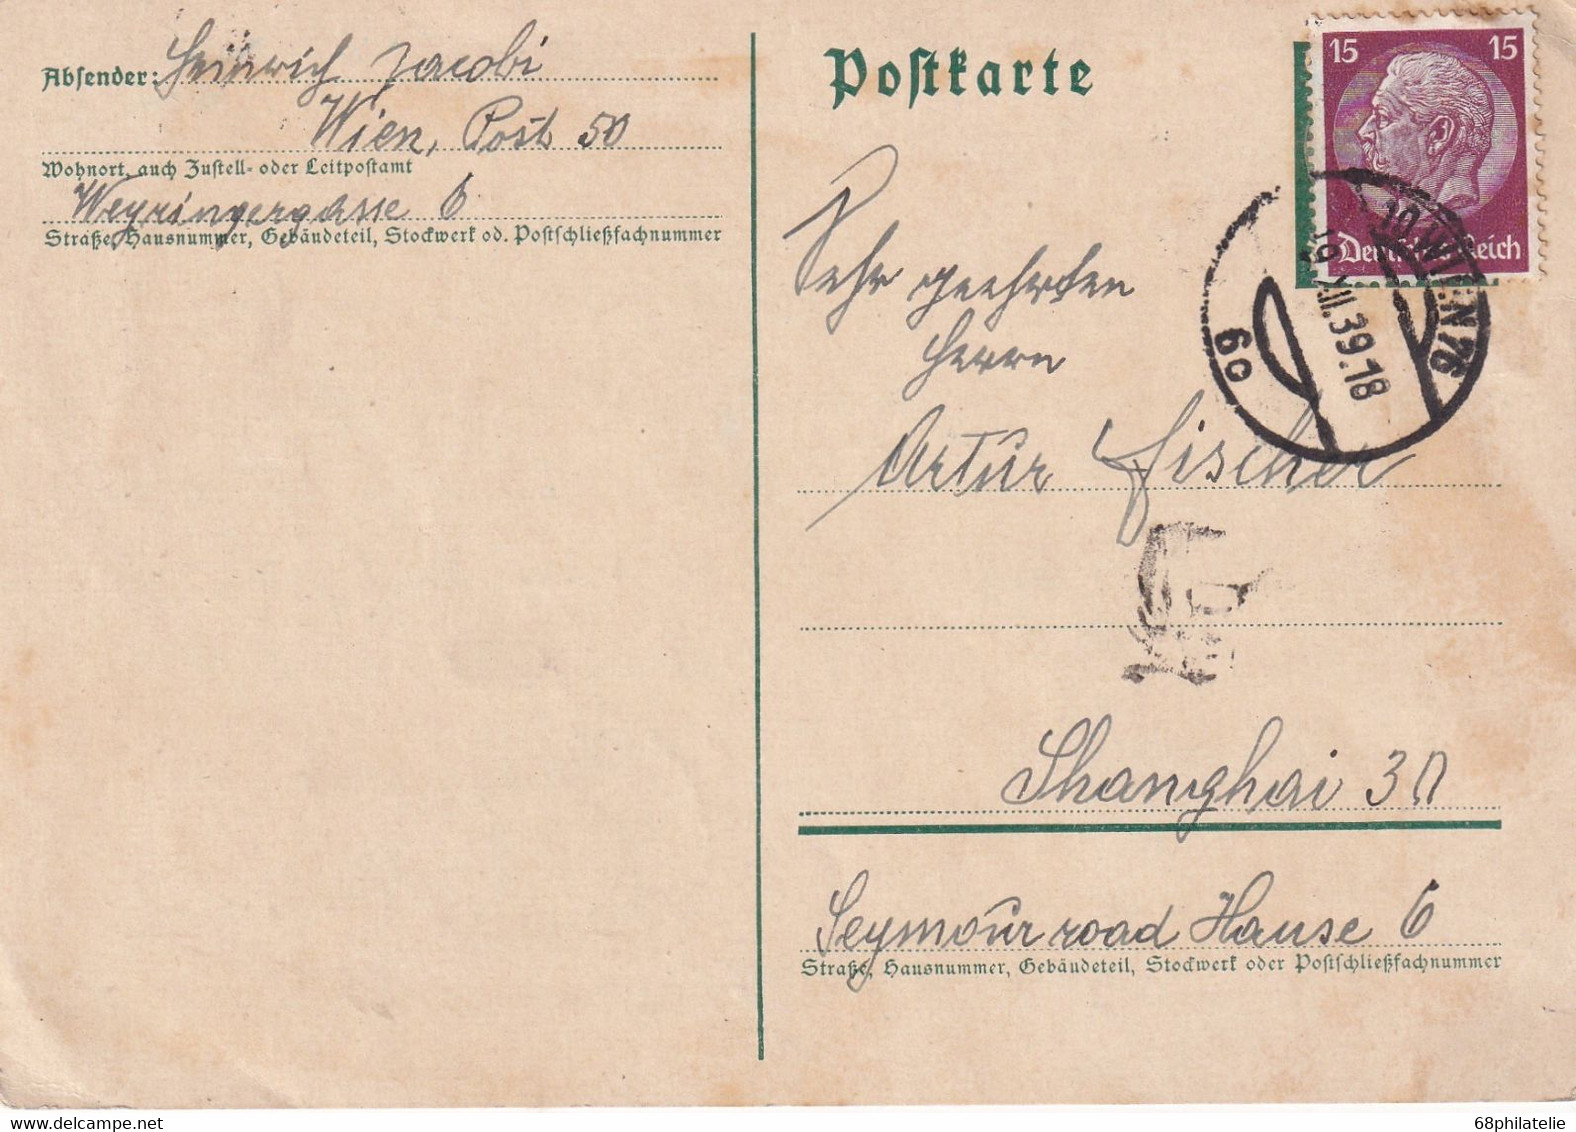 Absender: Heinrich Jacobi
Wien, Post 50
Wohnort, auch Zustell- oder Leitpostamt
Weyringergasse 6
Straße, Hausnummer, Gebäudeteil, Stockwerk od. Postschließfachnummer
Postkarte
15 15
Deutsches Reich
WIEN 76
39.18
Sehr geehrten
Herrn
Artur Fischer
Shanghai
Seymour road Hause 6
Straße, Hausnummer, Gebäudeteil, Stockwerk oder Postschließfachnummer
68philatelie